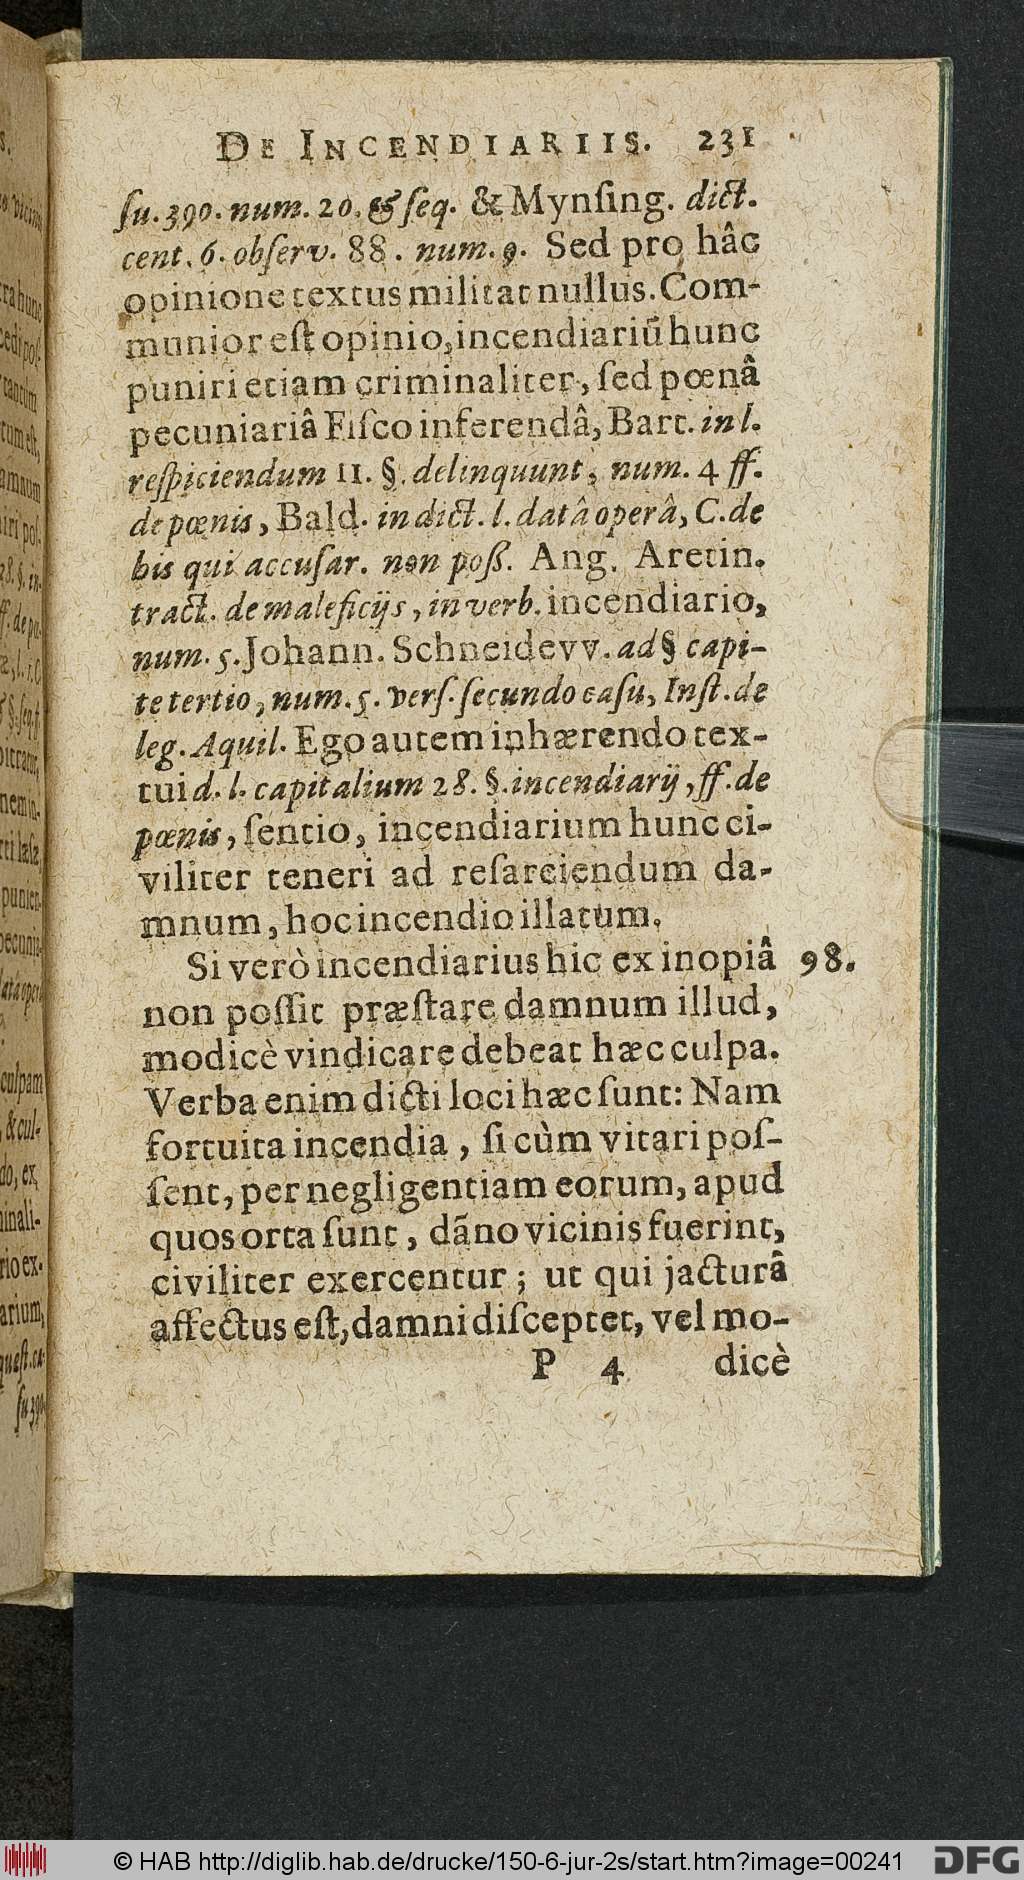 DE INCENDIARIIS. 231
ſu. 390. num. 20. & ſeq. & Mynſing. dict.
cent. 6. obſerv. 88. num. 9. Sed pro hâc
opinione textus militat nullus. Com-
munior eſt opinio, incendiariū hunc
puniri etiam criminaliter, ſed pœnâ
pecuniariâ Fiſco inferendâ, Bart. in l.
reſpiciendum 11. §. delinquunt, num. 4 ff.
de pœnis, Bald. in dict. l. datâ operâ, C. de
his qui accuſar. non poß. Ang. Aretin.
tract. de maleficijs, in verb. incendiario,
num. 5. Johann. Schneidevv. ad § capi-
te tertio, num. 5. verſ. ſecundo caſu, Inſt. de
leg. Aquil. Ego autem inhærendo tex-
tui d. l. capitalium 28. §. incendiarij, ff. de
pœnis, ſentio, incendiarium hunc ci-
viliter teneri ad reſarciendum da-
mnum, hoc incendio illatum.
Si verò incendiarius hic ex inopiâ 98.
non poſſit præſtare damnum illud,
modicè vindicare debeat hæc culpa.
Verba enim dicti loci hæc ſunt: Nam
fortuita incendia, ſi cùm vitari poſ-
ſent, per negligentiam eorum, apud
quos orta ſunt, dãno vicinis fuerint,
civiliter exercentur; ut qui jacturâ
affectus eſt, damni diſceptet, vel mo-
P 4 dicè
© HAB http://diglib.hab.de/drucke/150-6-jur-2s/start.htm?image=00241 DFG